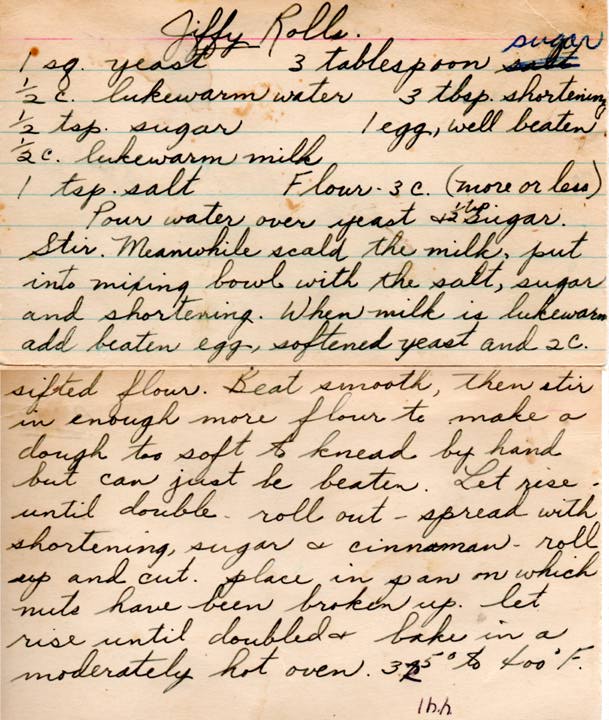 Jiffy Rolls.
sugar
1 sq. yeast 3 tablespoon salt
1/2 c. lukewarm water 3 tbsp. shortening
1/2 tsp. sugar 1 egg, well beaten
1/2 c. lukewarm milk
1 tsp. salt Flour - 3 c. (more or less)
Pour water over yeast & 1/2 tsp sugar.
Stir. Meanwhile scald the milk, put
into mixing bowl with the salt, sugar
and shortening. When milk is lukewarm
add beaten egg, softened yeast and 2 c.
sifted flour. Beat smooth, then stir
in enough more flour to make a
dough too soft to knead by hand
but can just be beaten. Let rise -
until double - roll out - spread with
shortening, sugar & cinnaman - roll
up and cut. place in pan on which
nuts have been broken up. let
rise until doubled & bake in a
moderately hot oven. 375° to 400° F.